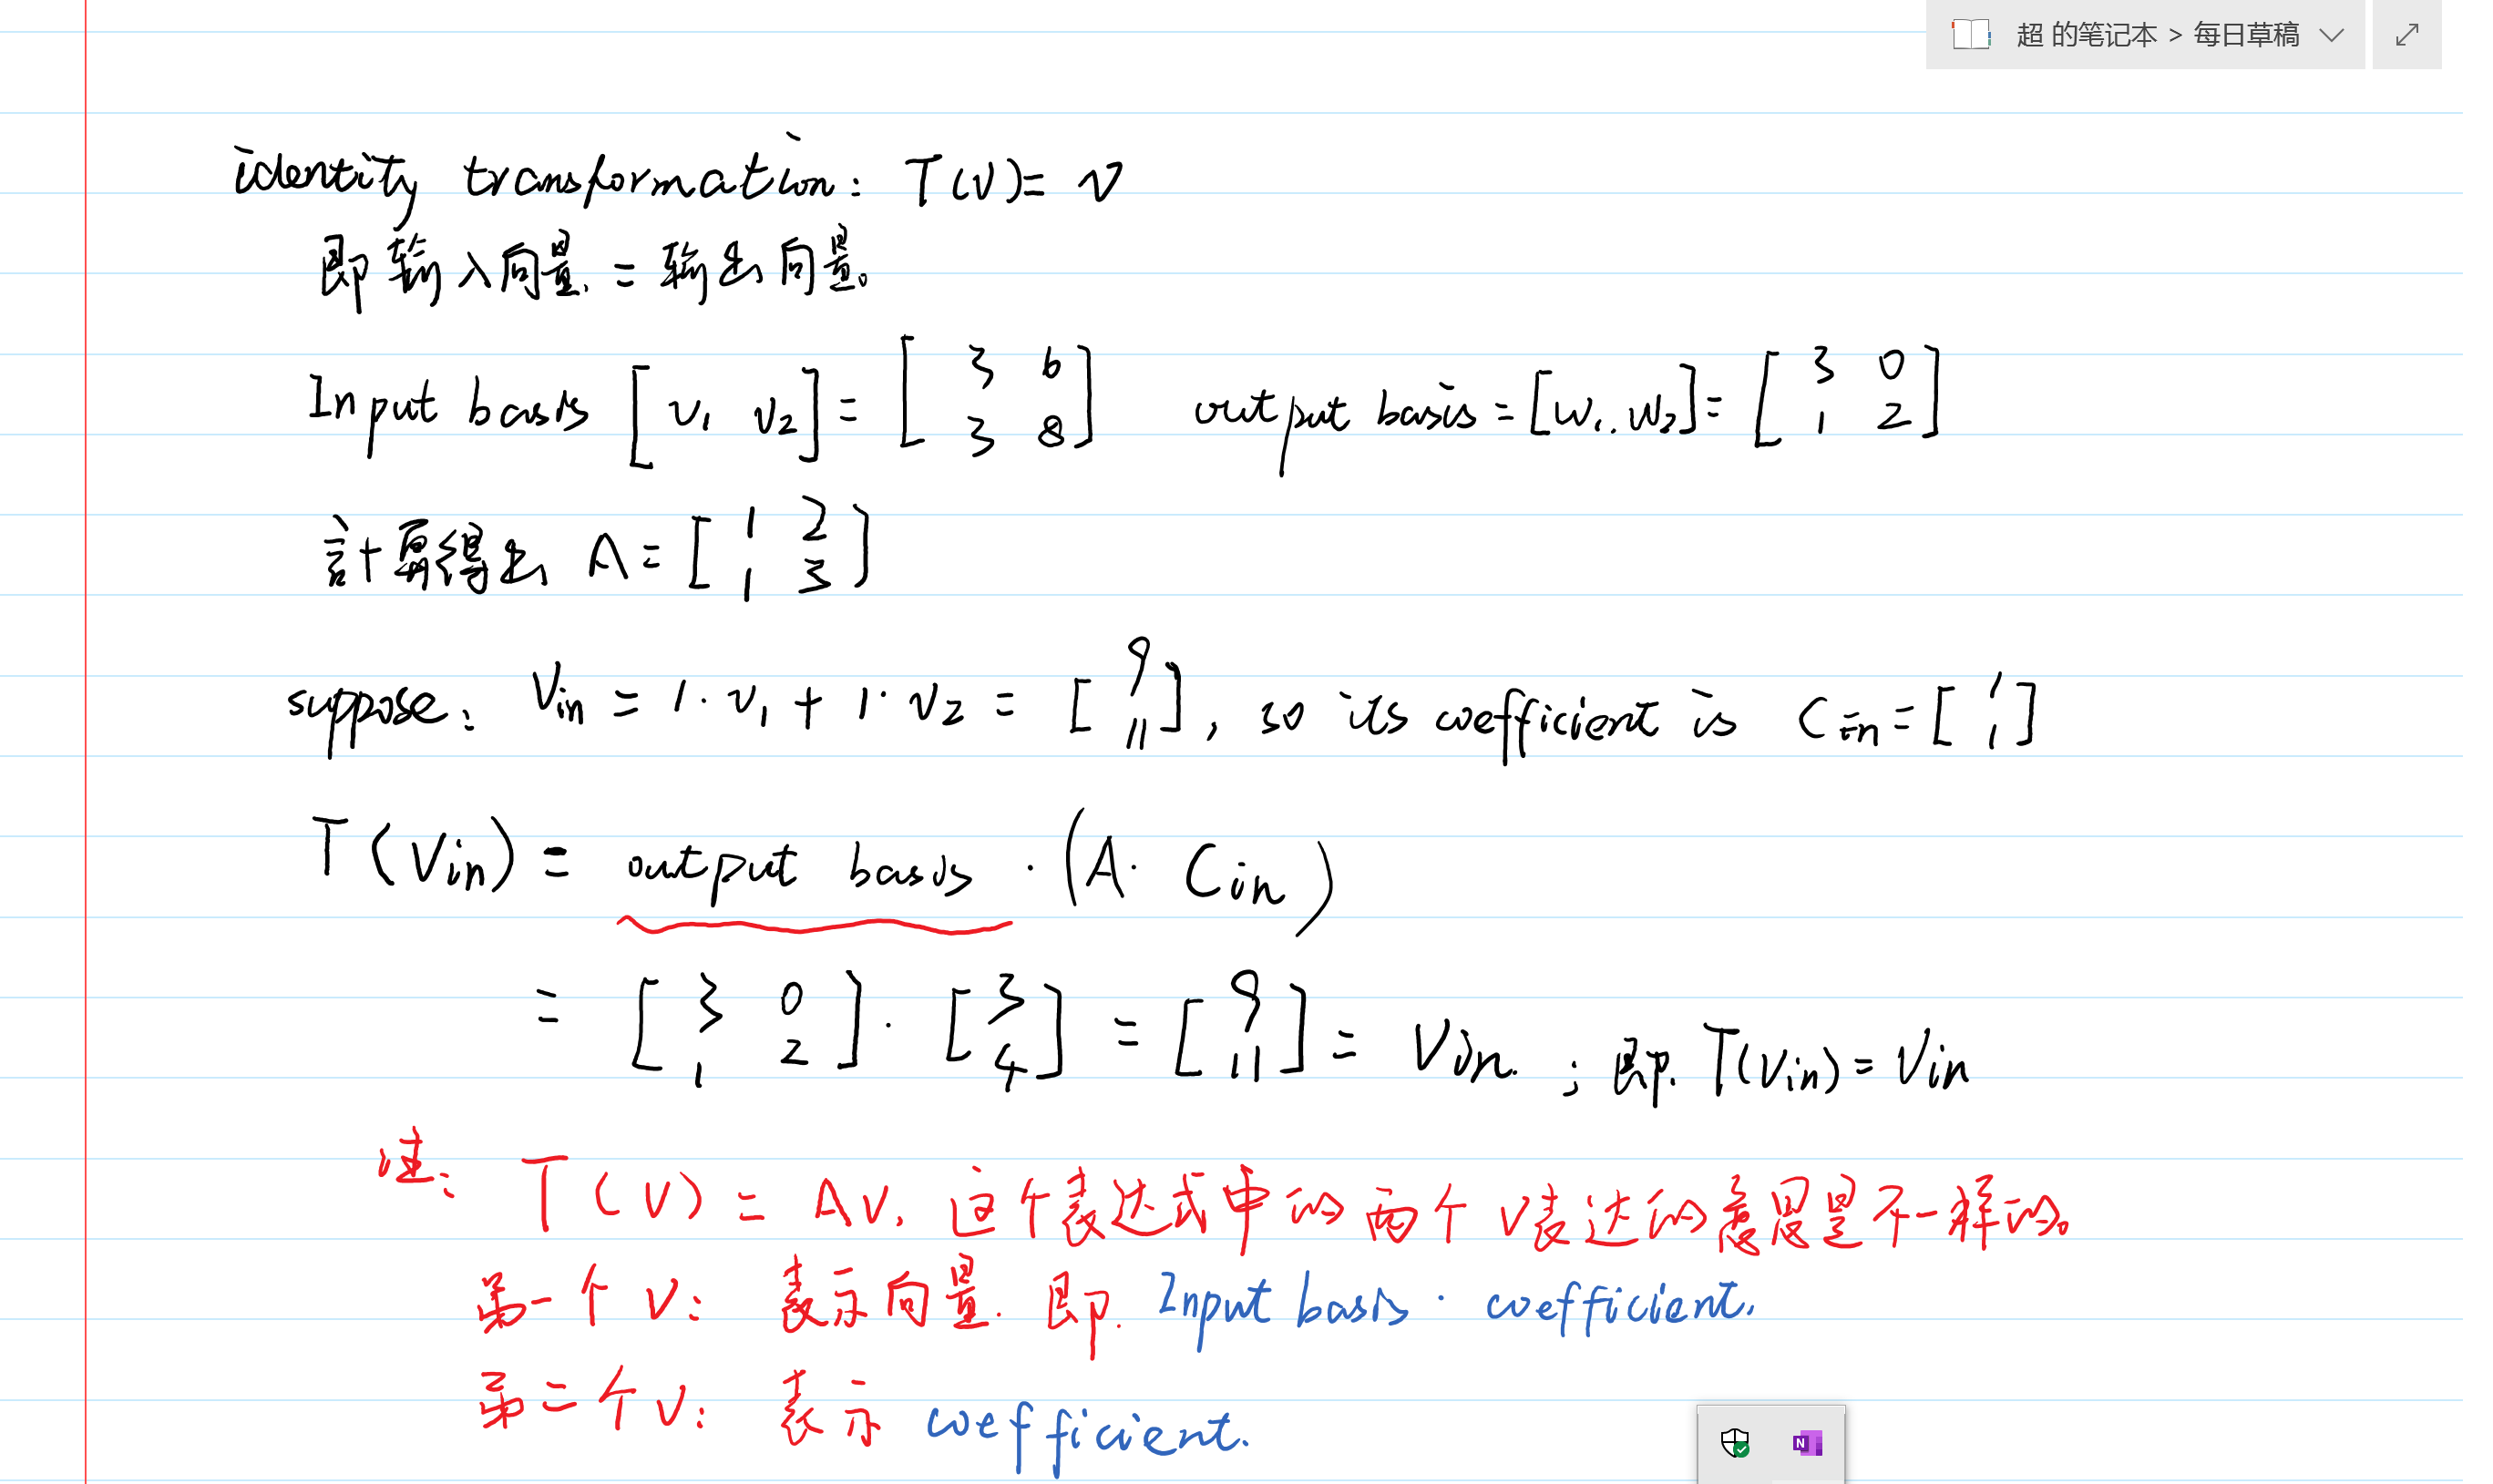 超 的笔记本 > 每日草稿
identity transformation: T(v)= v
即输入向量 = 输出向量。
Input basis [v1 v2] = [3 6; 3 8] output basis = [w1. w2] = [3 0; 1 2]
計算得出 A = [1 2; 1 3]
suppose: Vin = 1·v1 + 1·v2 = [9; 11], so its coefficient is Cin = [1; 1]
T(Vin) = output basis · (A· Cin)
= [3 0; 1 2] · [3; 4] = [9; 11] = Vin. ; 即. T(Vin) = Vin
注: T(V) = AV, 这个表达式中的两个V表达的意思是不一样的。
第一个V: 表示向量. 即. Input basis · coefficient.
第二个V: 表示 coefficient.